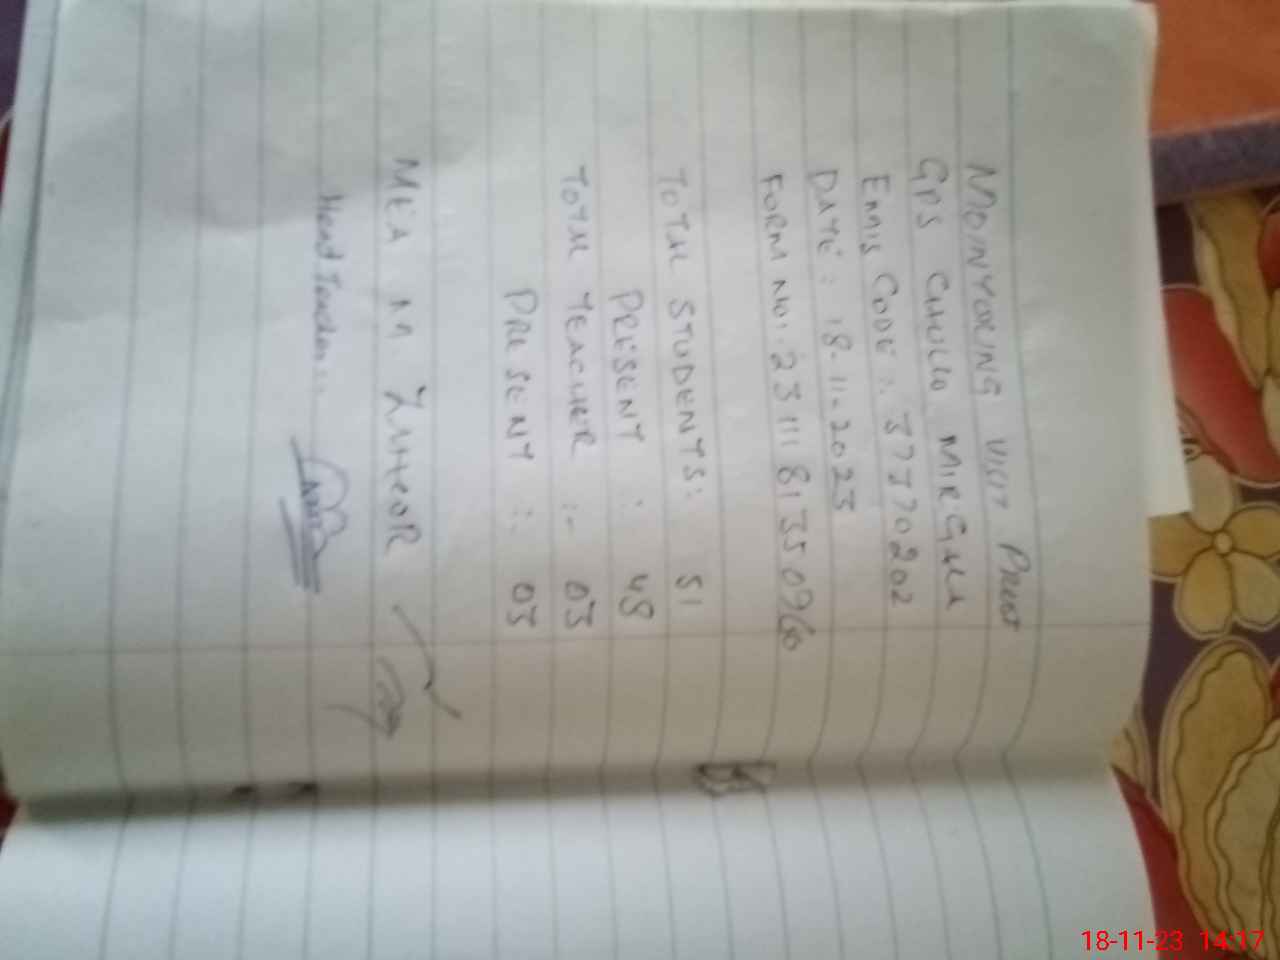 MOINYORING VISIT Proof
GPS CHULLO MIRGALA
EMIS CODE :. 37370202
DATE : 18-11-2023
FORM NO. 2311181350960
TOTAL STUDENTS: 51
PRESENT : 48
TOTAL TEACHER :- 03
PRESENT :. 03
MEA M. ZUHOOR
Head Teacher:.
18-11-23 14:17